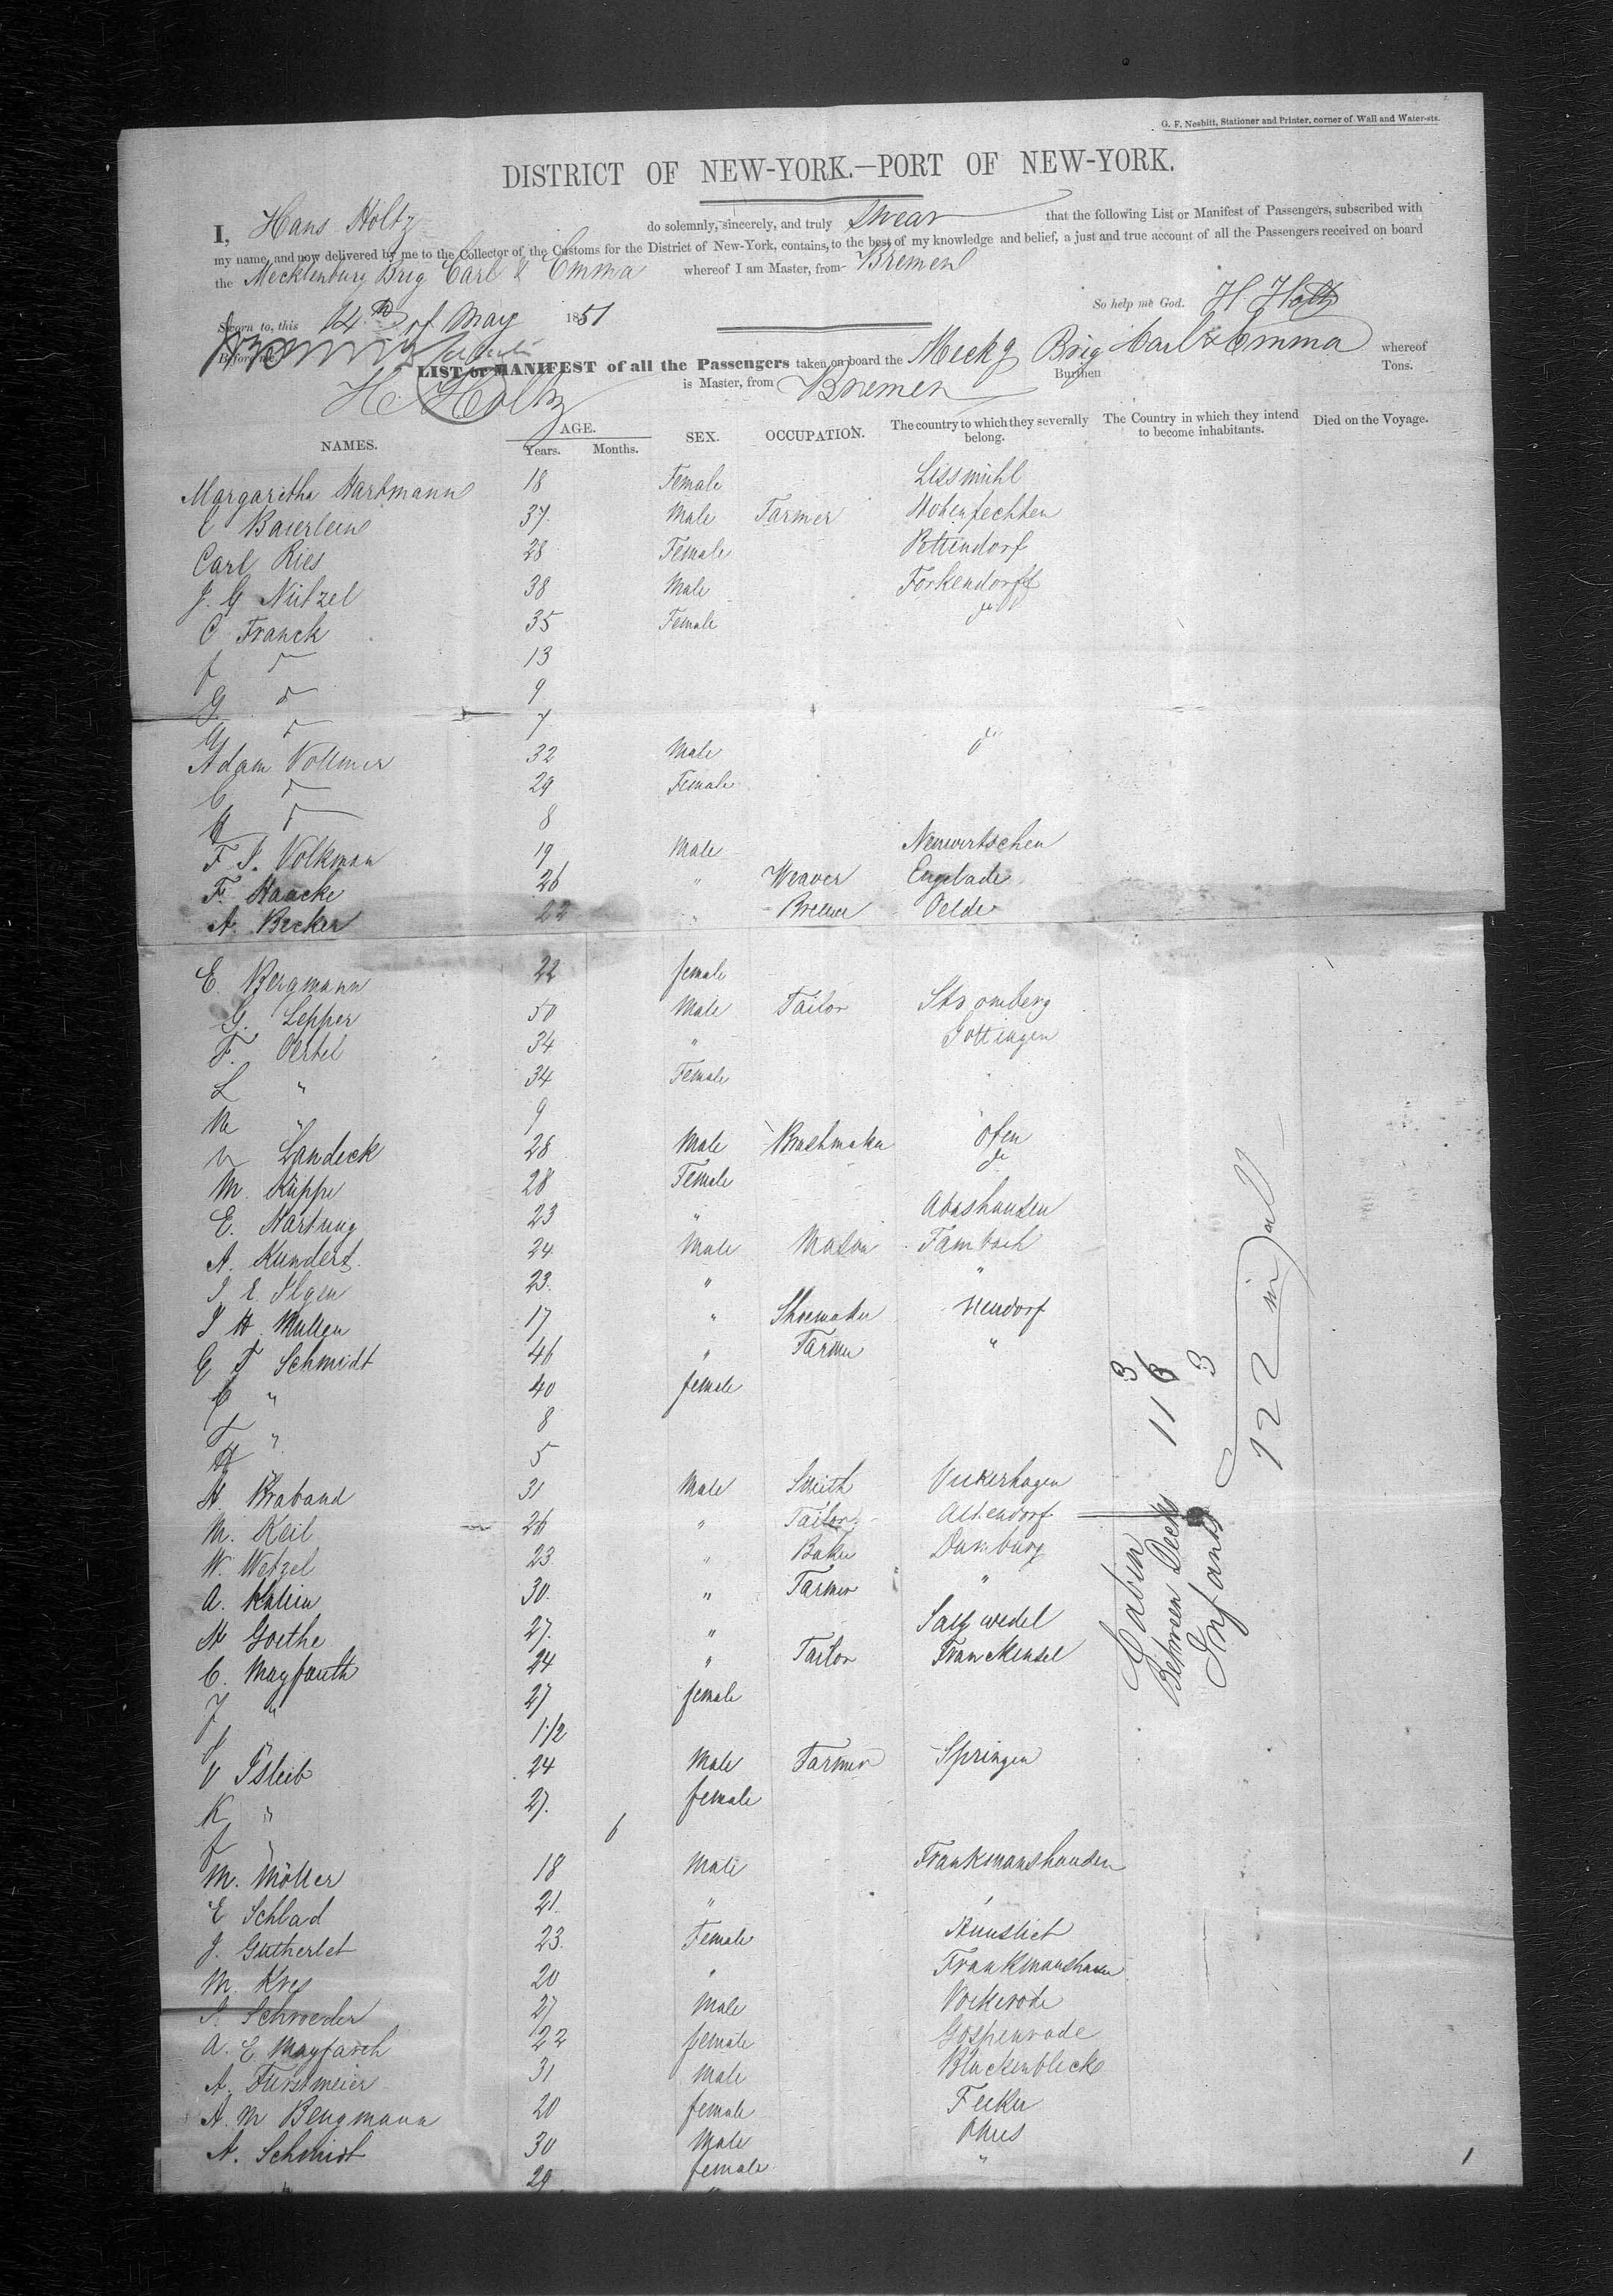 G. F. Nesbitt, Stationer and Printer, corner of Wall and Water-sts.
DISTRICT OF NEW-YORK.—PORT OF NEW-YORK.
I, Hans Holtz do solemnly, sincerely, and truly Swear that the following List or Manifest of Passengers, subscribed with
my name, and now delivered by me to the Collector of the Customs for the District of New-York, contains, to the best of my knowledge and belief, a just and true account of all the Passengers received on board
the Mecklenburg Brig Carl & Emma whereof I am Master, from Bremen
Sworn to, this 14th of May 1851 So help me God. H. Holtz
Before me,
LIST or MANIFEST of all the Passengers taken on board the Meckg Brig Carl & Emma whereof
H. Holtz is Master, from Bremen Burthen Tons.
NAMES. AGE. Years. Months. SEX. OCCUPATION. The country to which they severally belong. The Country in which they intend to become inhabitants. Died on the Voyage.
Margaretha Hartmann 18 Female Lissmühl
C Baierlein 37 Male Farmer Hohenfechten
Carl Ries 28 Female Pettendorf
J. G Nützel 38 Male Forkendorff
C Franck 35 Female do
f 13
G 9
7
Adam Vollmer 32 Male do
C 29 Female
8
F. J. Volkman 19 Male Neuwirtschen
F. Haacke 26 " Weaver Engelade
A. Becker 22 " Brewer Oelde
E. Bergmann 22 female
G. Lepper 50 Male Tailor Stromberg
F. Oertel 34 " Gottingen
L " 34 Female
M " 9
Landeck 28 Male Brushmaker Ofen
M. Küppe 28 Female do
E. Hartung 23 " Abashausen
A. Kunders 24 Male Mason Tambach
J. E. Ilgen 23 " "
J H Muller 17 " Shoemaker Neudorf
G F Schmidt 46 " Farmer "
C " 40 female
F " 8
H " 5
H. Braband 31 Male Smith Uckerhagen
M. Keil 26 " Tailor Altendorf
W. Wetzel 23 " Baker Damburg
A. Kalein 30 " Farmer "
H Goethe 27 " Salzwedel
C. Mayfarth 24 " Tailor Franckensel
J " 27 female
1 1/2
V Isleib 24 Male Farmer Springen
K " 27 female
f " 6
M. Möller 18 Male Frankmanshausen
E Schlad 21 "
J. Gutherlet 23 Female
M. Kres 20 " Frankmanshausen
J. Schroeder 27 Male Vockerode
A. E. Mayfarth 22 female Gospenrode
A. Furstmeier 31 Male Bluckenbleck
A. M Bengmann 20 female
A. Schmidt 30 Male Ohus
29 female "
Cabin 3
Between Decks 116
Infants 3
122 in all
1